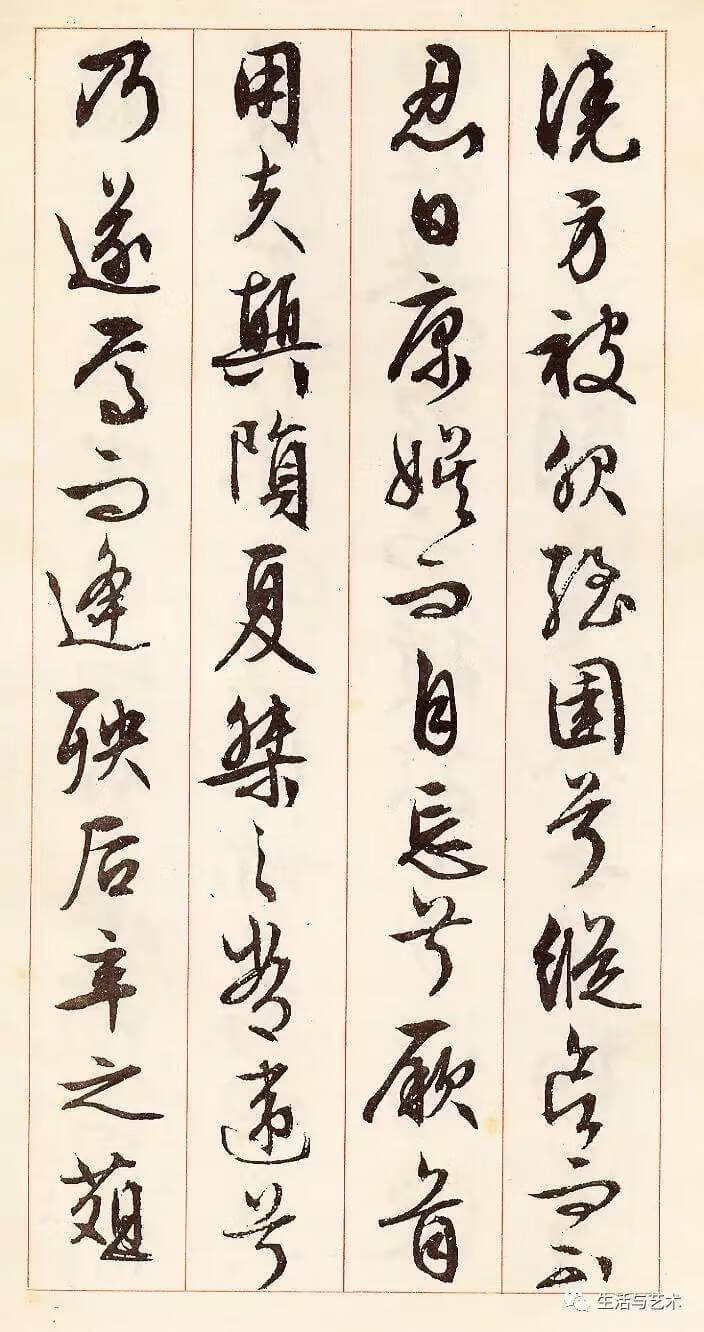 澆身被服强圉兮縱欲而不
忍日康娛而自忘兮厥首
用夫顛隕夏桀之常違兮
乃遂焉而逢殃后辛之葅
生活与艺术